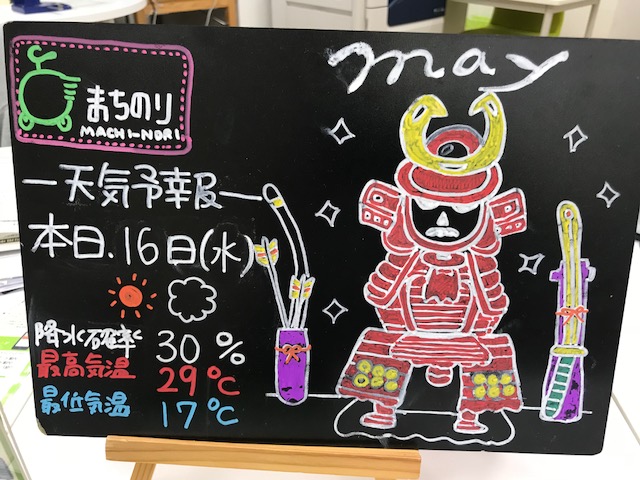 may
まちのり
MACHI-NORI
ー天気予報ー
本日.16日(水)
降水確率 30%
最高気温 29℃
最低気温 17℃